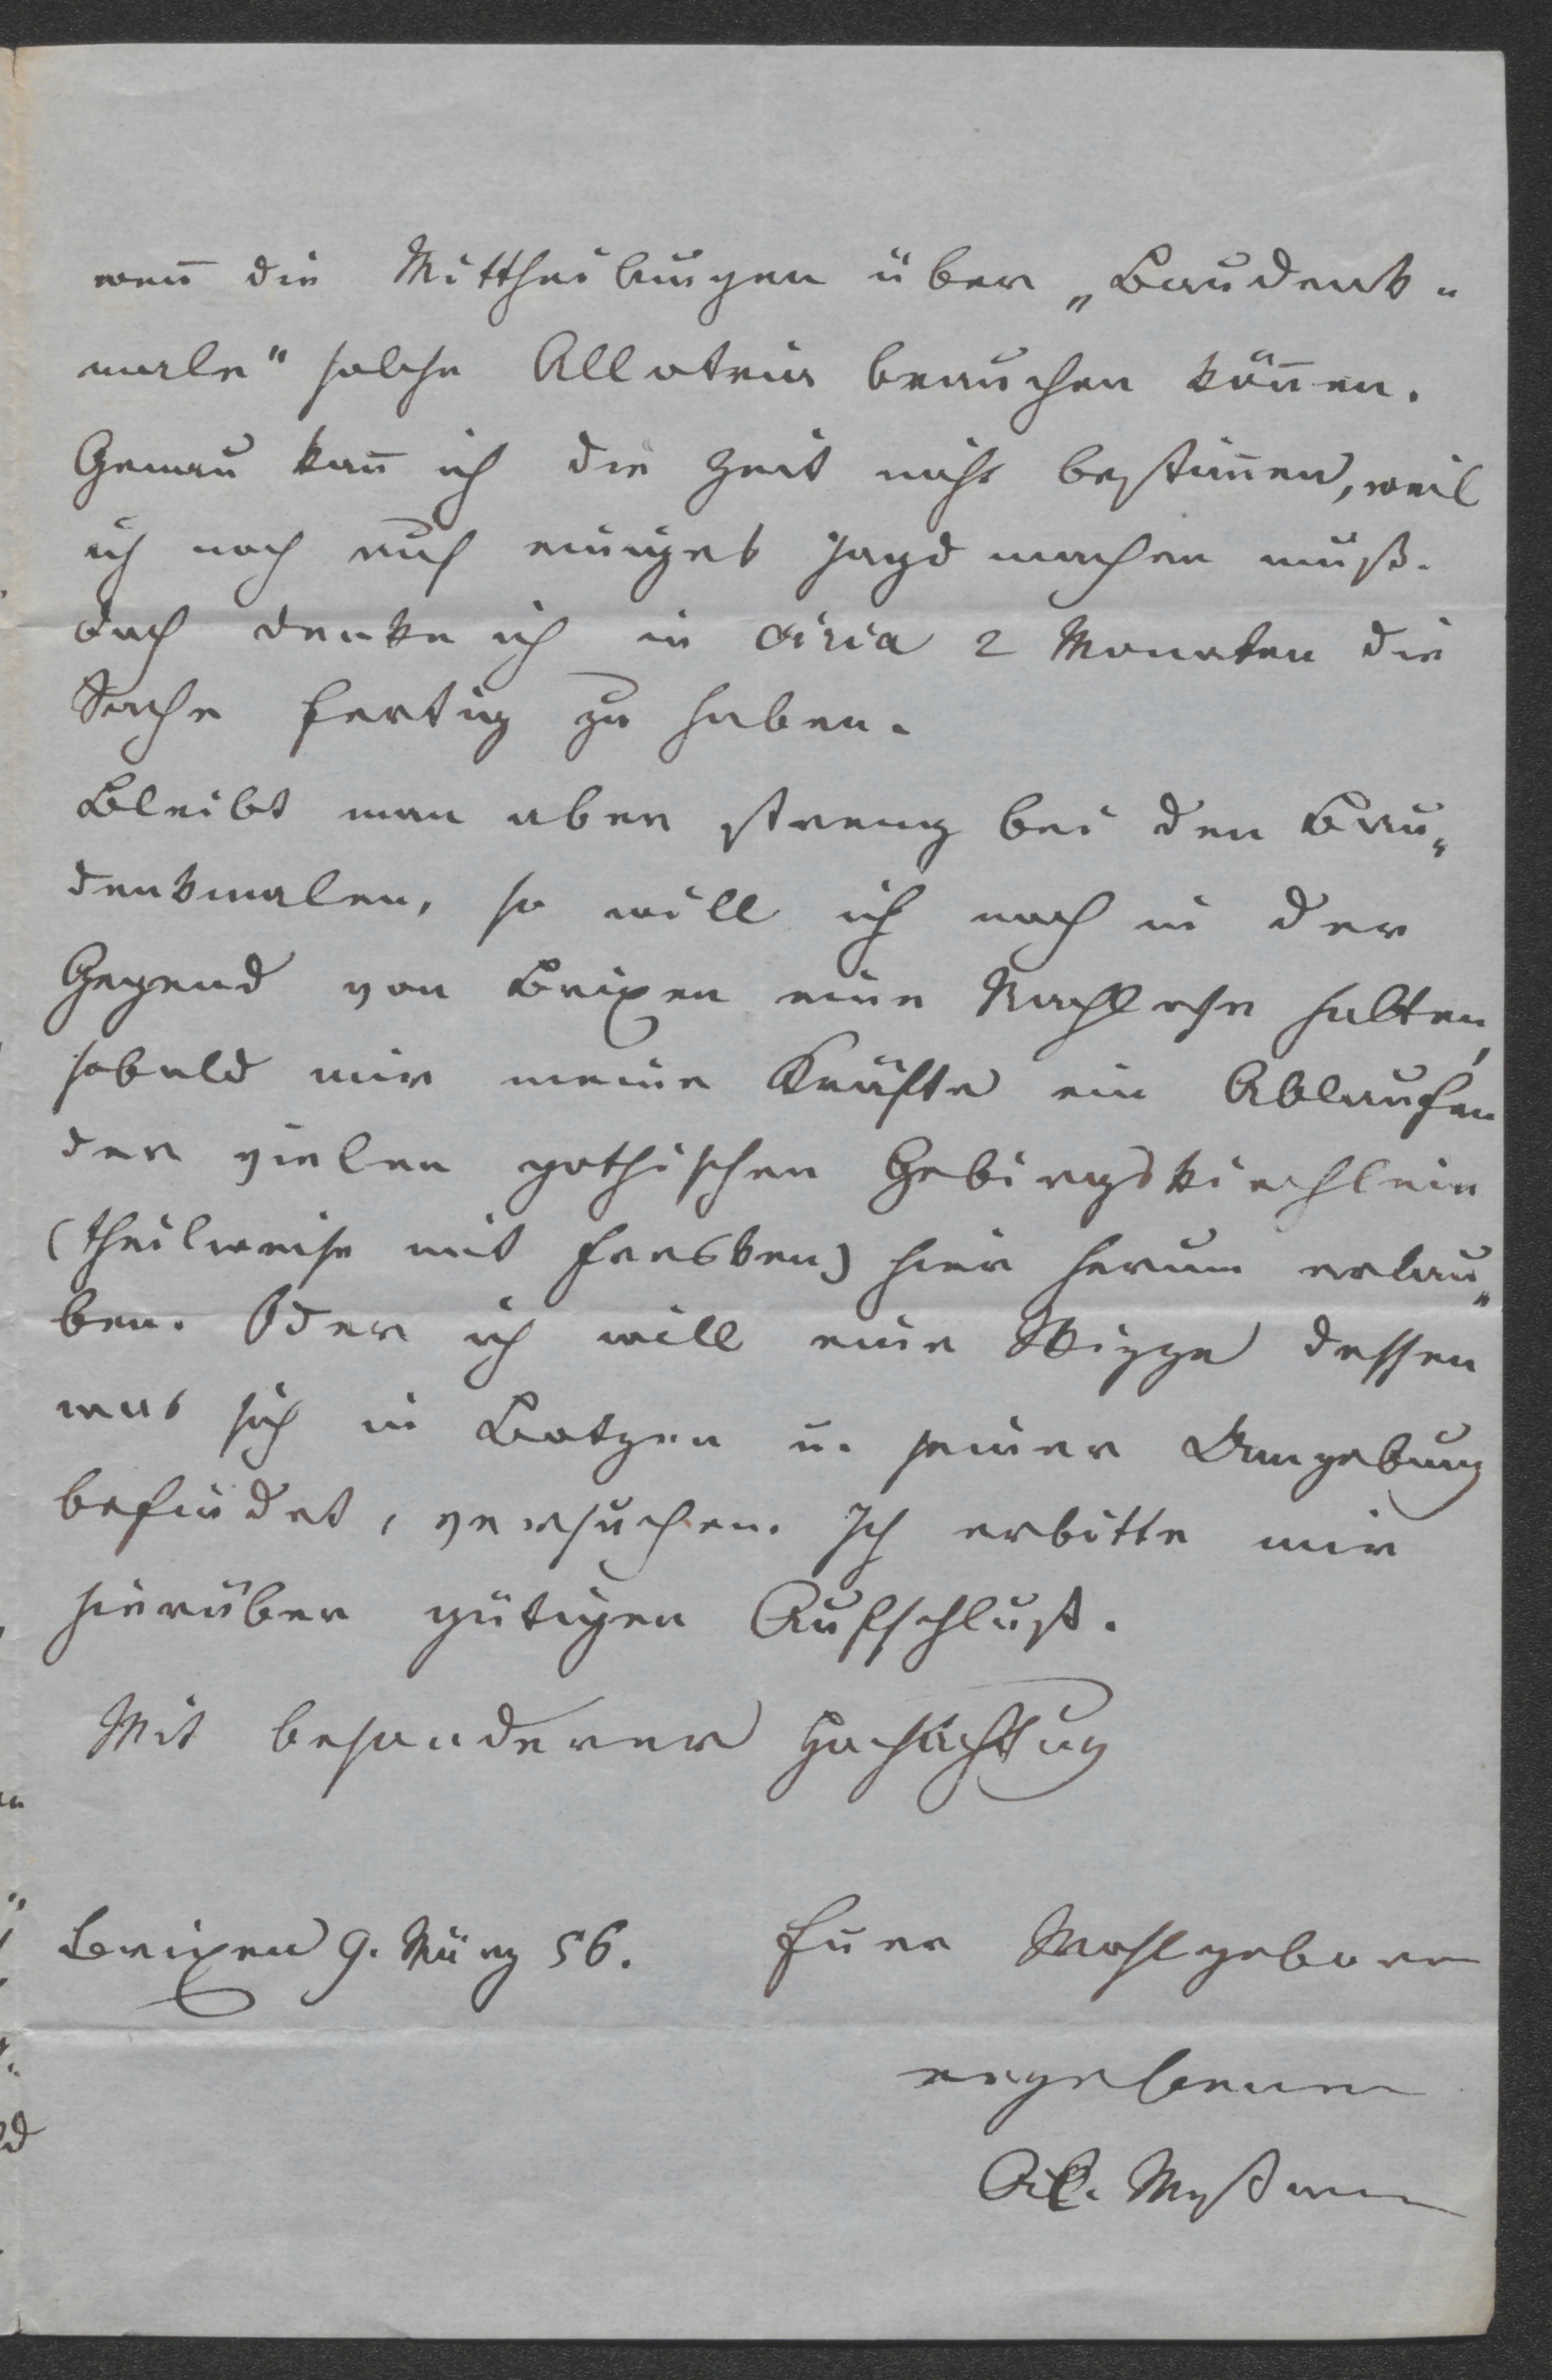 wen̄ die Mittheilungen über „Baudenk„
male" solche Allotria brauchen kön̄en.
Genau kan̄ ich die Zeit nicht bestim̄en, weil
ich noch auf einiges Jagd machen muß.
Doch denke ich in circa 2 Monaten die
Sache fertig zu haben.
Bleibt man aber streng bei den Bau„
denkmalen, so will ich noch in der
Gegend von Brixen eine Nachlese halten,
sobald mir meine Kräfte ein Ablaufen
der vielen gothischen Gebirgskirchlein
(theilweise mit Fresken) hier herum erlau„
ben. Oder ich will eine Skizze dessen
was sich in Botzen u. seiner Umgebung
befindet, versuchen. Ich erbitte mir
hierüber gütigen Aufschluß.
Mit besonderer Hochachtung
Brixen 9. März 56. Euer Wohlgeboren
ergebener
A. Meßmer